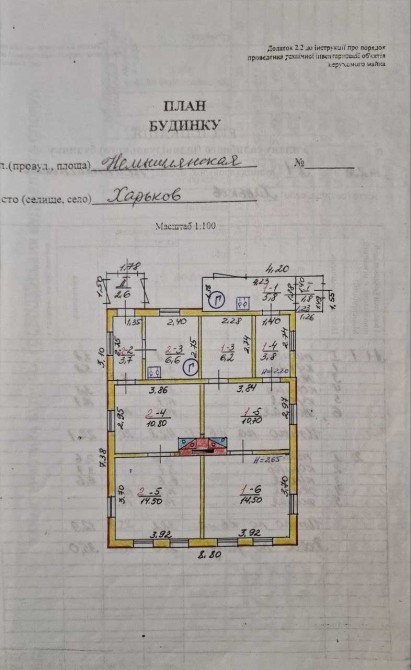 Додаток 2.2 до Інструкції про порядок
проведення технічної інвентаризації об'єктів
нерухомого майна
ПЛАН
БУДИНКУ
л.(провул., площа) Немышлянская №
сто (селище, село) Харьков
Масштаб 1:100
1,78
4,20
1,50
2,6
4,23
1-1
5,8
1,40
1,8
1,65
1,26
1,35
2,40
2,28
1,40
3,10
2-2
3,7
2-3
6,6
2,75
1-3
6,2
2,74
1-4
3,8
2,74
Г
Г
H=2,20
3,86
3,84
2,95
2-4
10,80
1-5
10,70
2,97
7,38
H=2,65
3,70
2-5
14,50
1-6
14,50
3,70
3,92
3,92
8,80